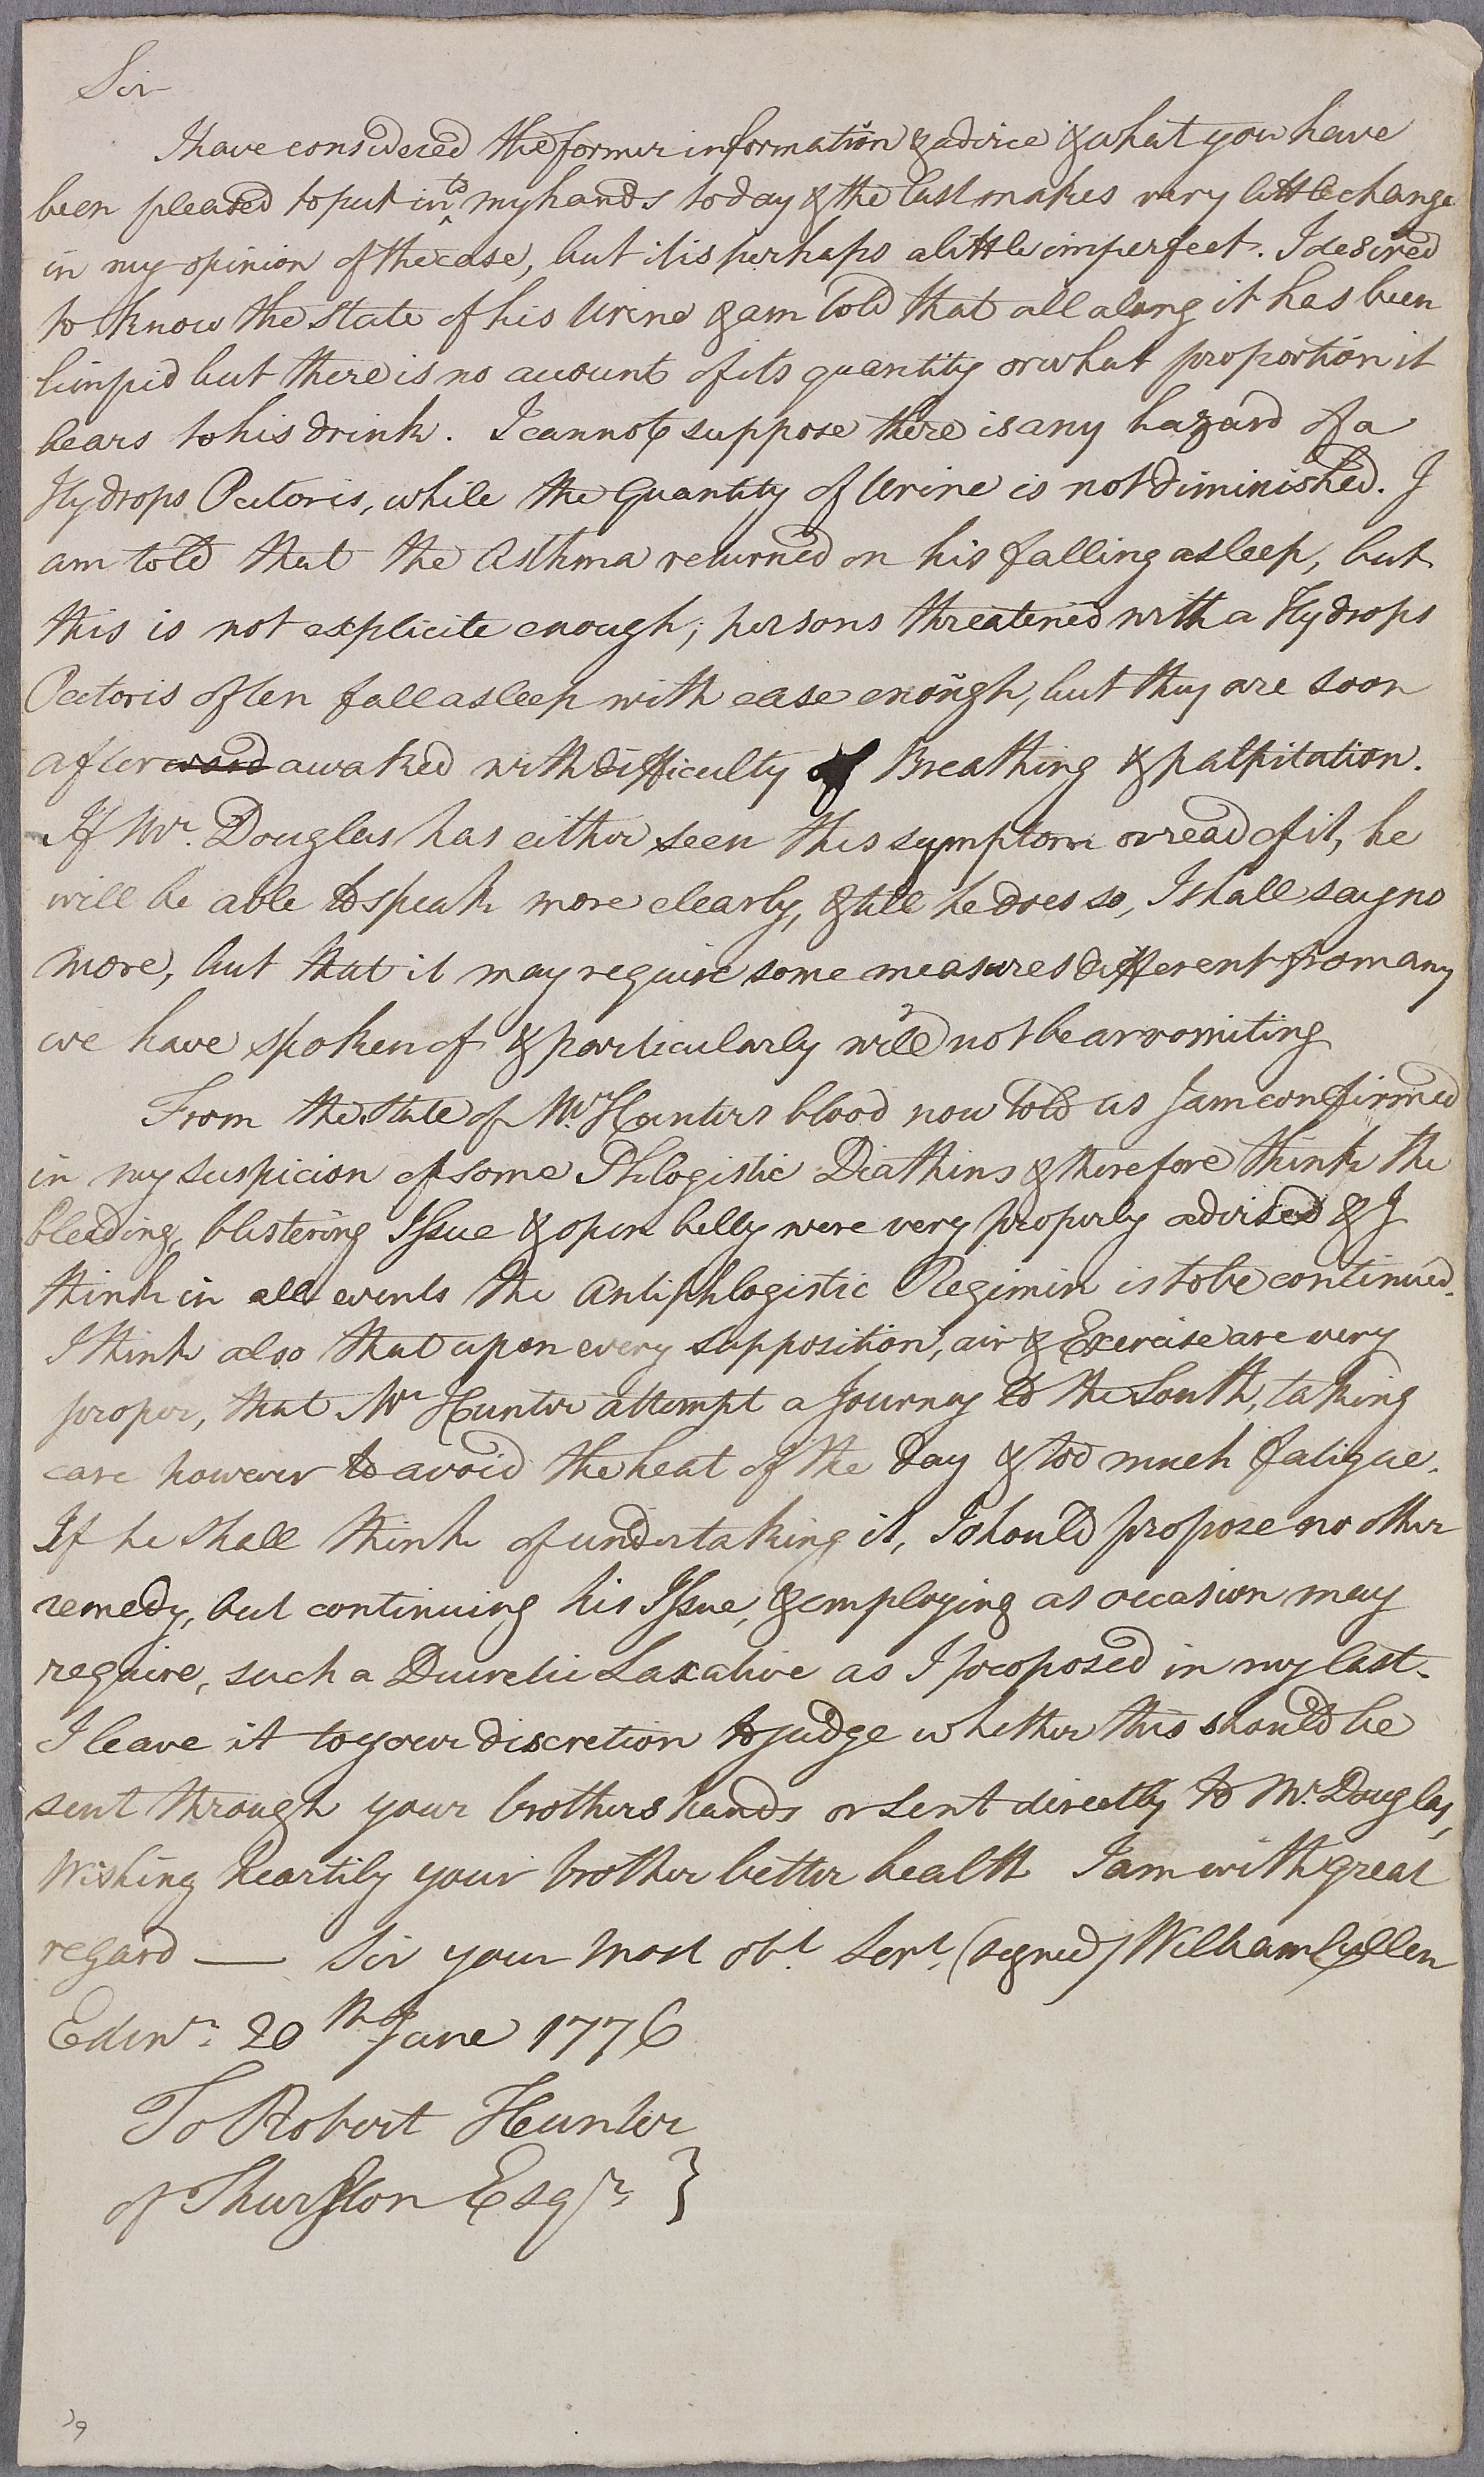 Sir
I have considered the former information & advice & what you have
been pleased to put into my hands today & the last makes very little change
in my opinion of the case, but it is perhaps a little imperfect. I desired
to know the State of his Urine & am told that all along it has been
limpid but there is no account of its quantity or what proportion it
bears to his drink. I cannot suppose there is any hazard of a
Hydrops Pectoris, while the Quantity of Urine is not diminished. I
am told that the Asthma returned on his falling asleep, but
this is not explicite enough; persons threatened with a Hydrops
Pectoris often fall asleep with ease enough, but they are soon
afterward awaked with difficulty of Breathing & palpitation.
If Mr. Douglas has either seen this symptom or read of it, he
will be able to speak more clearly, & till he does so, I shall say no
more, but that it may require some measures different from any
we have spoken of & particularly will not bear vomiting
From the state of Mr. Hunters blood now told us I am confirmed
in my suspicion of some Phlogistic Diathins & therefore think the
bleeding, blistering Issue & open belly were very properly advised & I
think in all events the Antiphlogistic Regimin is to be continued.
I think also that upon every supposition, air & Exercise are very
proper, that Mr Hunter attempt a Journey to the South, taking
care however to avoid the heat of the Day & too much fatigue.
If he shall think of undertaking it, I should propose no other
remedy, but continuing his Issue, & employing as occasion may
require, such a Diuretic Laxative as I proposed in my last.
I leave it to your discretion to judge whether this should be
sent through your brothers hands or sent directly to Mr. Douglas,
Wishing heartily your brother better health I am with great
regard — Sir your most obt. Sert. (signed) William Cullen
Edinr. 20th June 1776
To Robert Hunter
of Thurston Esqr. }